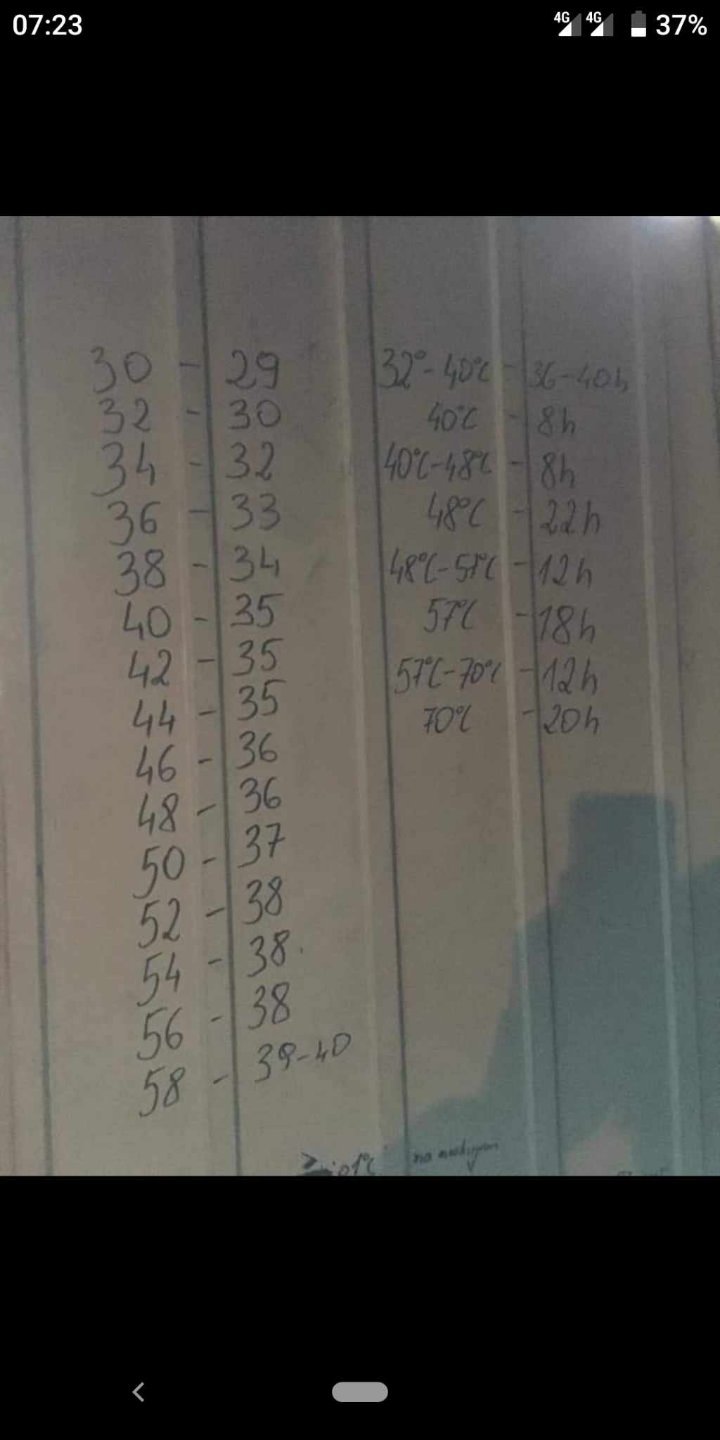 07:23 4G 4G 37%
30 - 29
32 - 30
34 - 32
36 - 33
38 - 34
40 - 35
42 - 35
44 - 35
46 - 36
48 - 36
50 - 37
52 - 38
54 - 38
56 - 38
58 - 39-40
32°-40°C - 36-40h
40°C - 8h
40°C-48°C - 8h
48°C - 22h
48°C-57°C - 12h
57°C - 18h
57°C-70°C - 12h
70°C - 20h
na